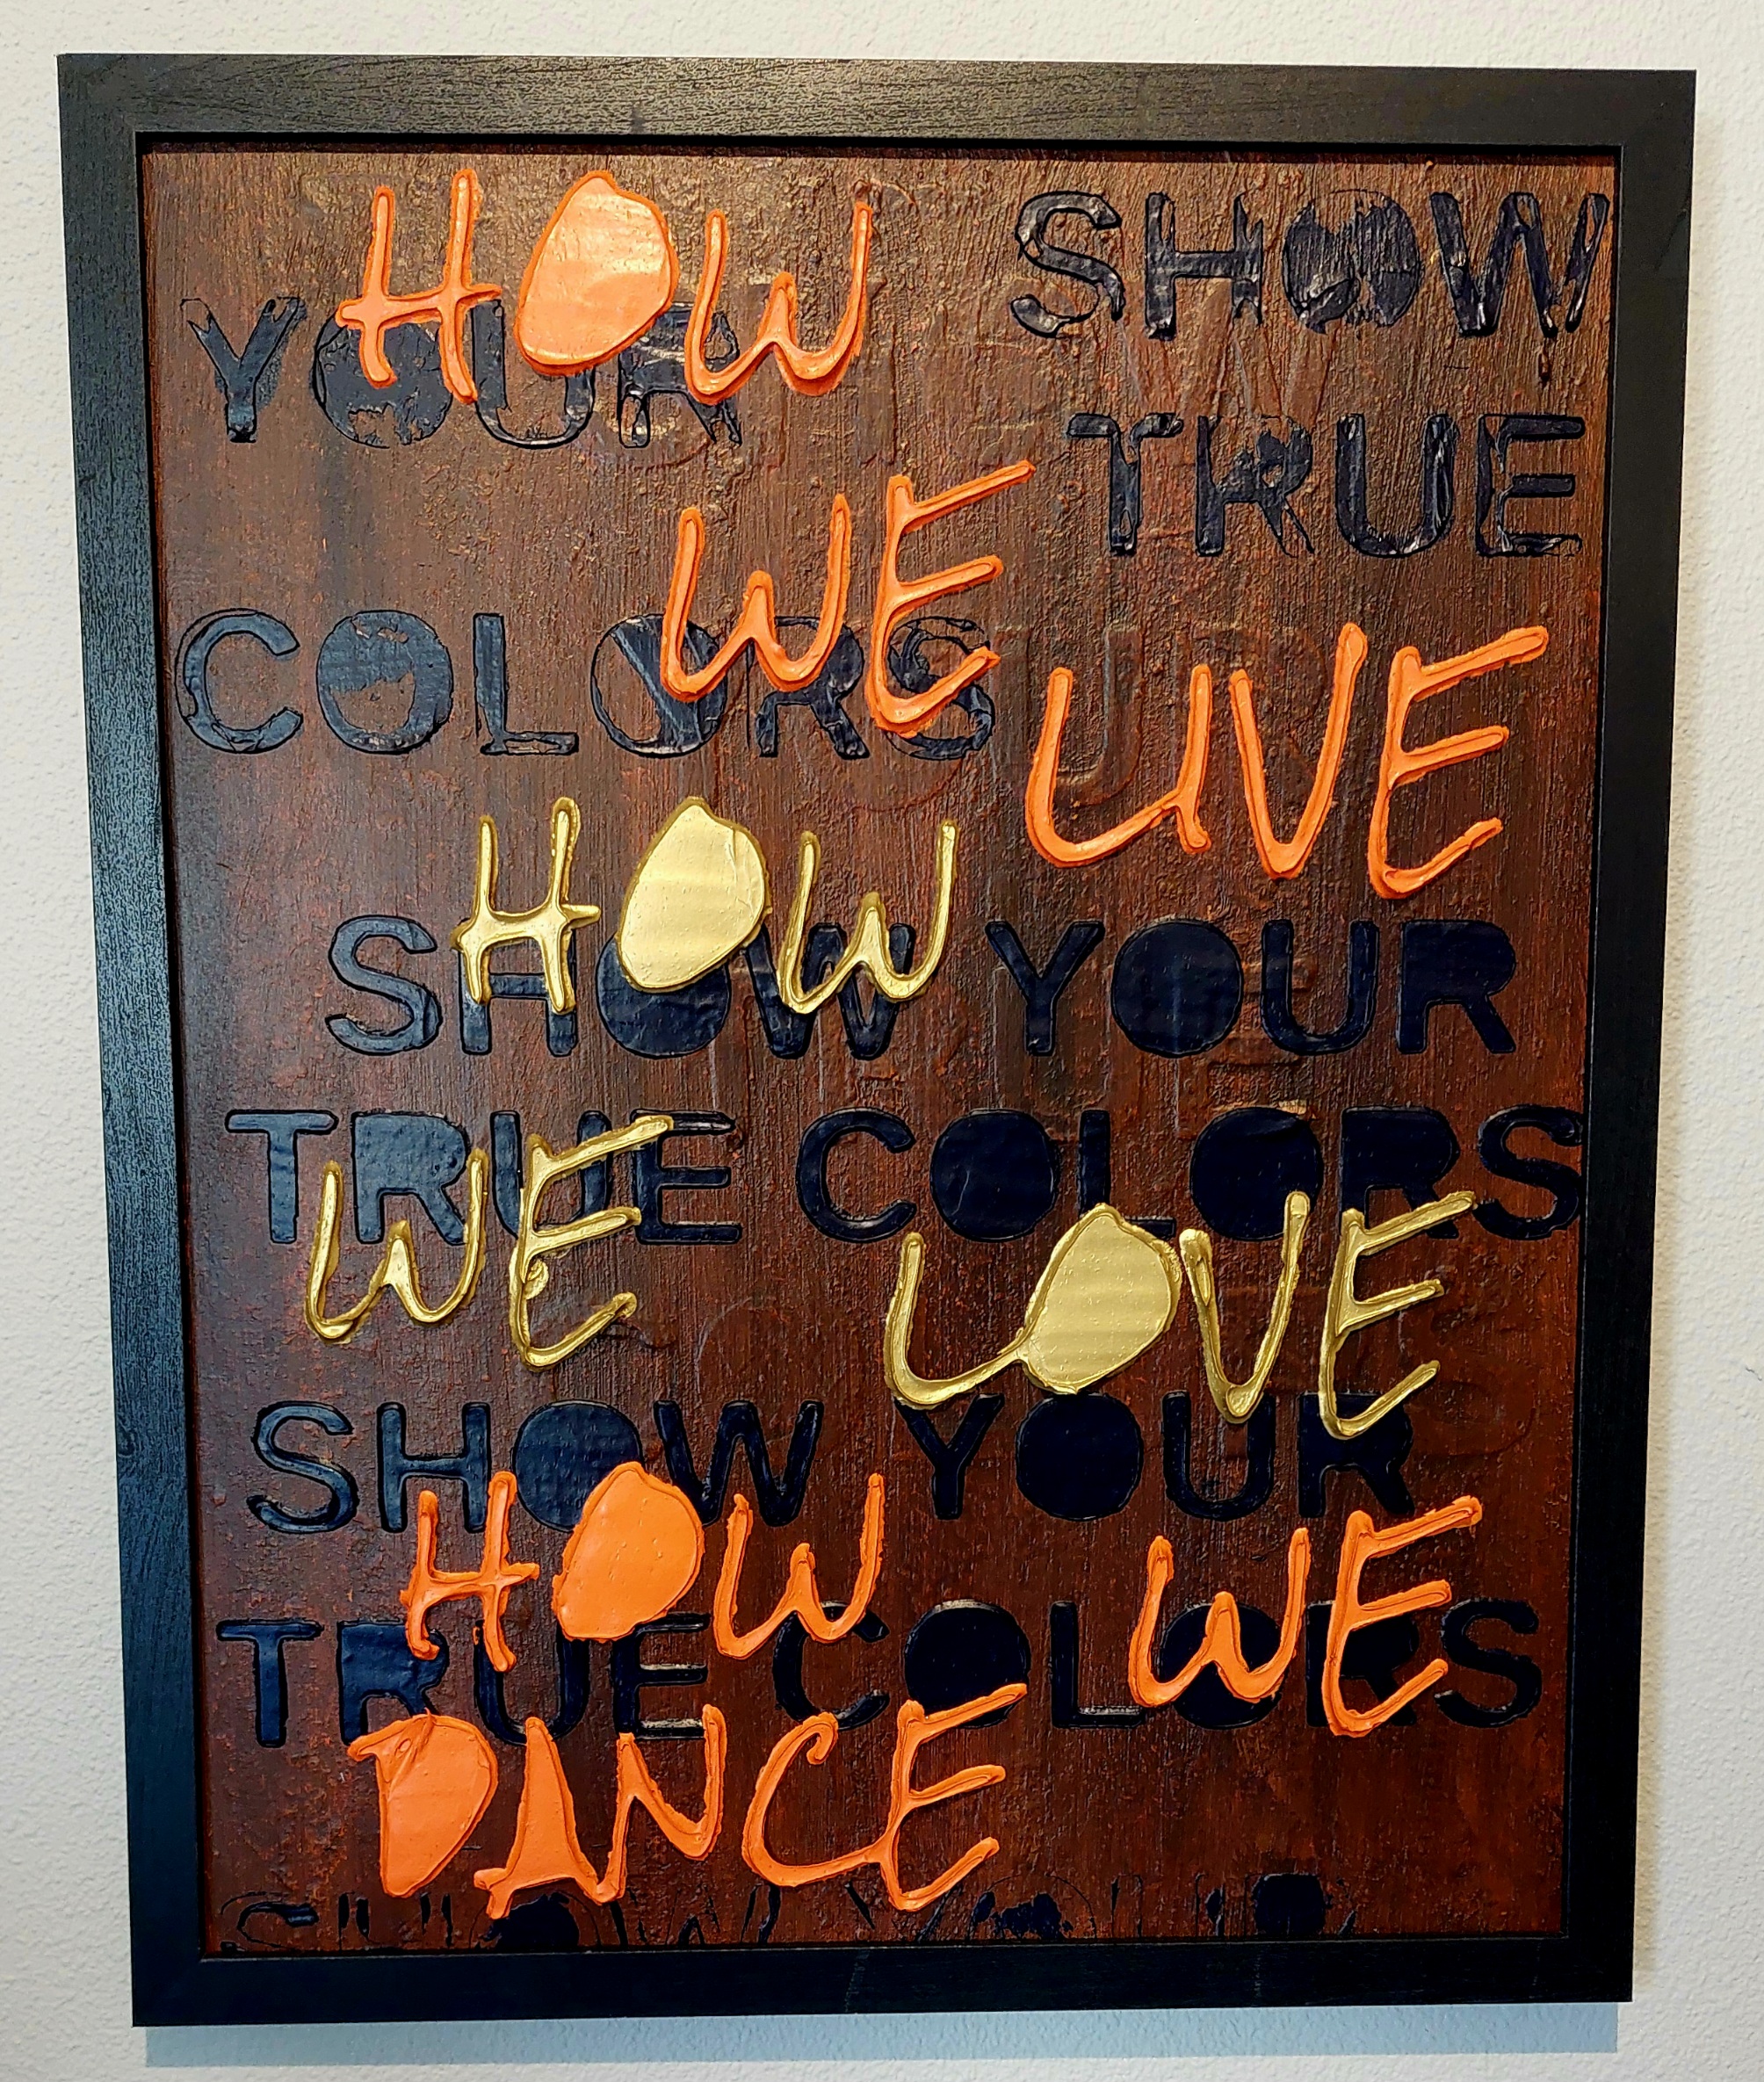 HOW SHOW
YOUR
TRUE
WE
COLORS
LIVE
HOW
SHOW YOUR
TRUE COLORS
WE LOVE
SHOW YOUR
HOW WE
TRUE COLORS
DANCE
SHOW YOUR